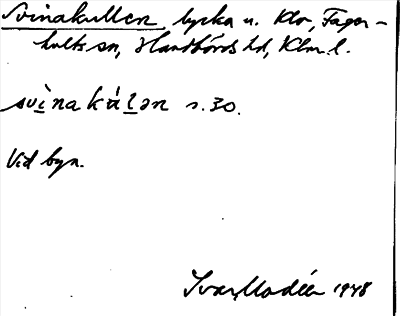 Svinakullen lycka u. Klo, Fager-
hults sn, Handbörds hd, Klm. l.
svìnakálən s. 30.
Vid byn.
Ivar Modéer 1948